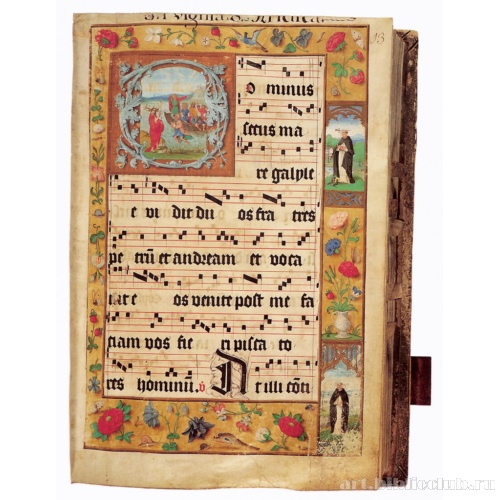 vigilia
13
o minus
secus ma
re galyle
e vidit du os fra tres
petrū et andream et voca
uit e os venite post me fa
ciam vos fie ri pisca to
res hominū. v At illi cōti
art.biblioclub.ru